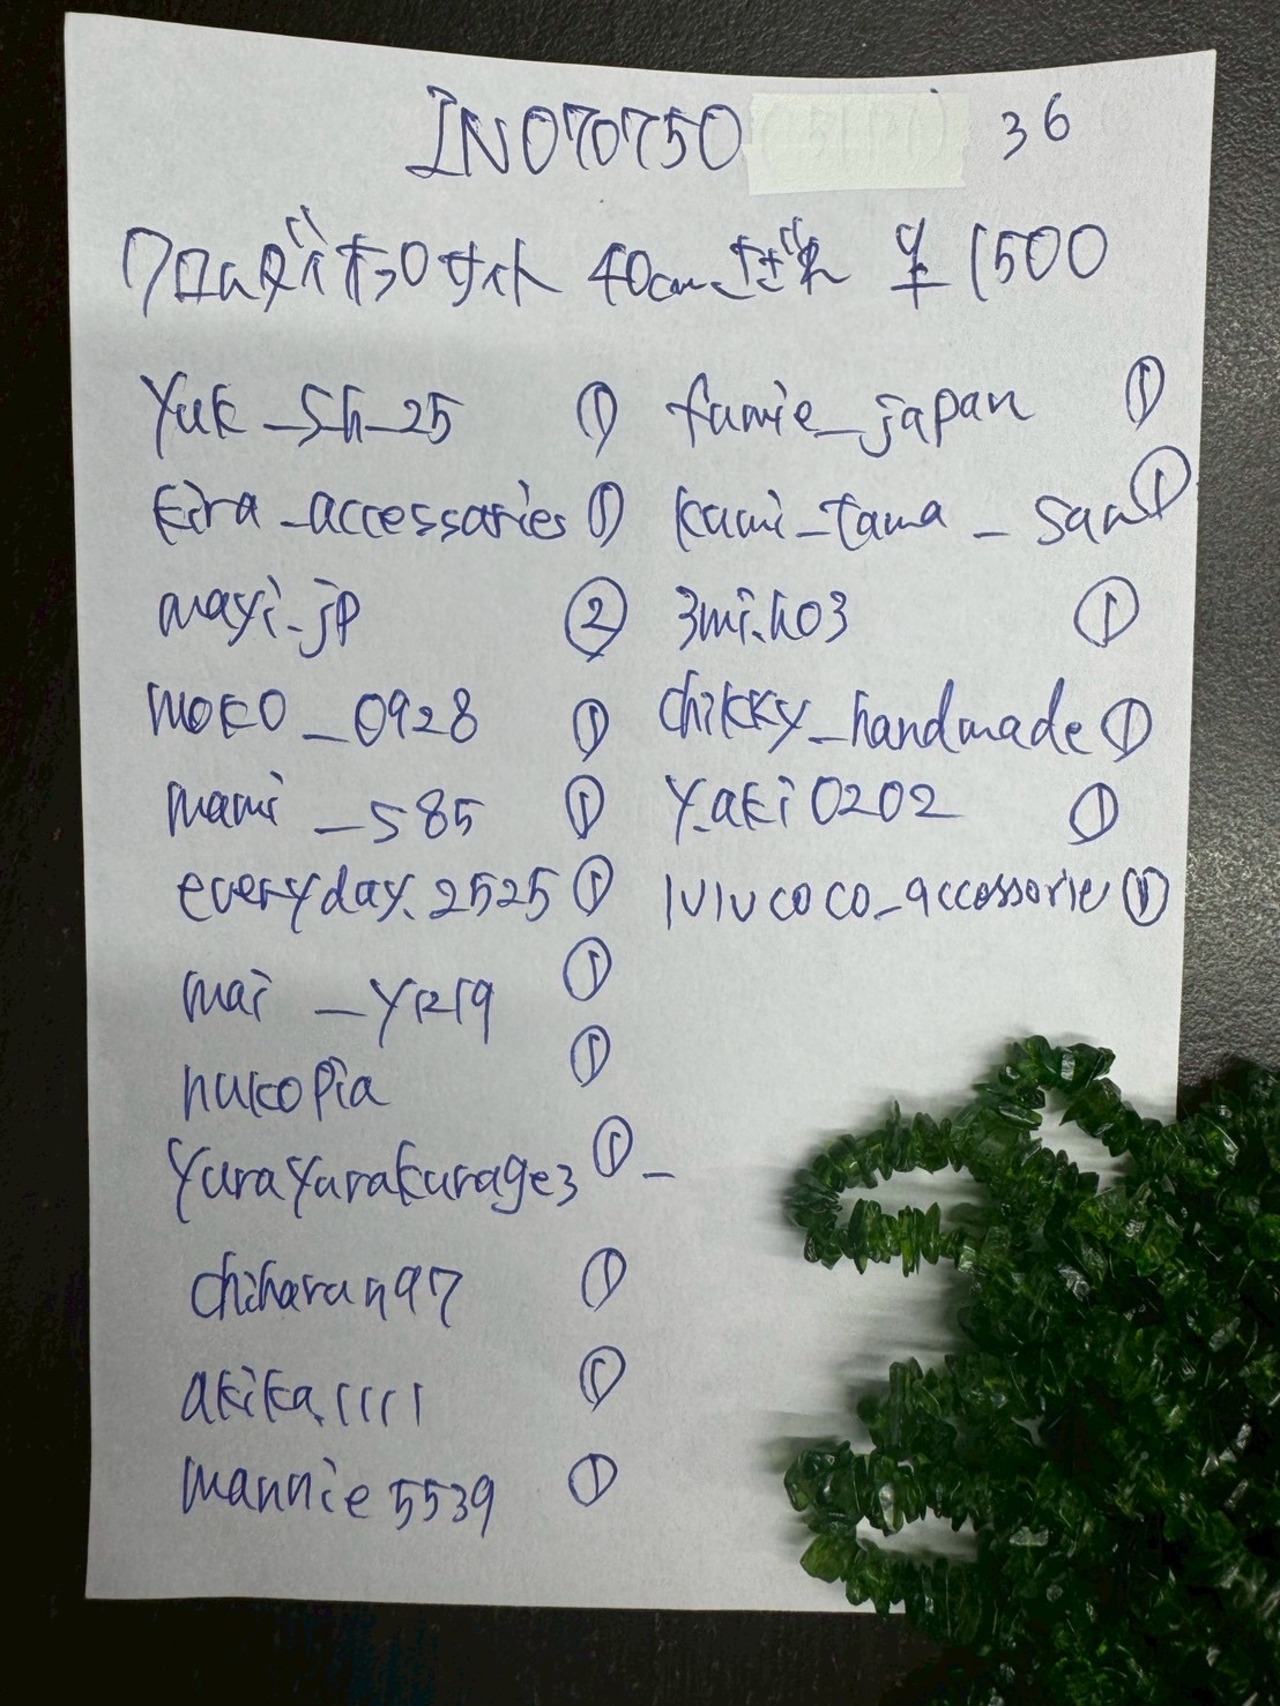 IN070750 36
クロムダイオプサイト 40cmさざれ ¥1500
Yuk_sh_25 ①
kira_accessaries ①
mayi_jp ②
moko_0928 ①
mami_585 ①
everyday.2525 ①
mai_y1219 ①
nukopia ①
YuraYurakurage3 ① -
chiharan97 ①
akika.1111 ①
mannie5539 ①
fumie_japan ①
kumi_tama_san ①
3mi.ho3 ①
chikky_handmade ①
Y.aki0202 ①
lulucoco_accessorie ①